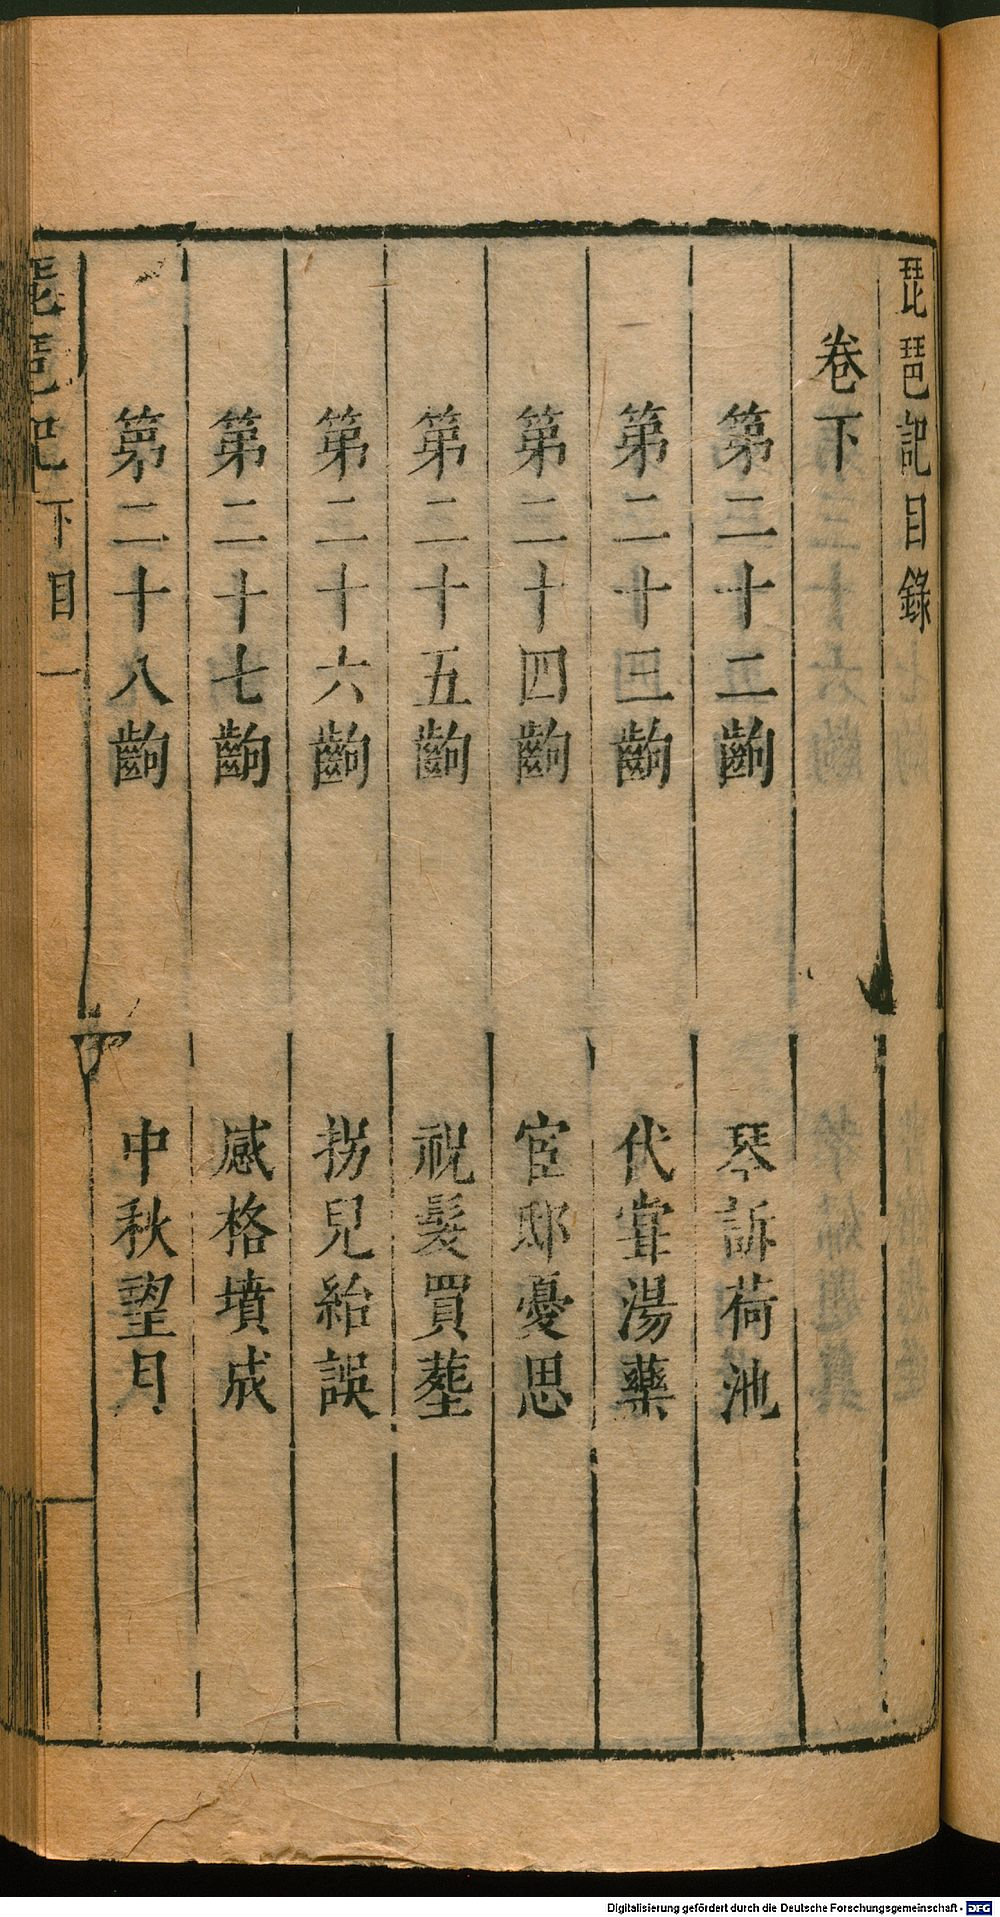 琵琶記目錄
卷下
第二十二齣 琴訴荷池
第二十三齣 代嘗湯藥
第二十四齣 宦邸憂思
第二十五齣 祝髮買塟
第二十六齣 拐兒紿誤
第二十七齣 感格墳成
第二十八齣 中秋望月
琵琶記 下目 一
Digitalisierung gefördert durch die Deutsche Forschungsgemeinschaft - DFG